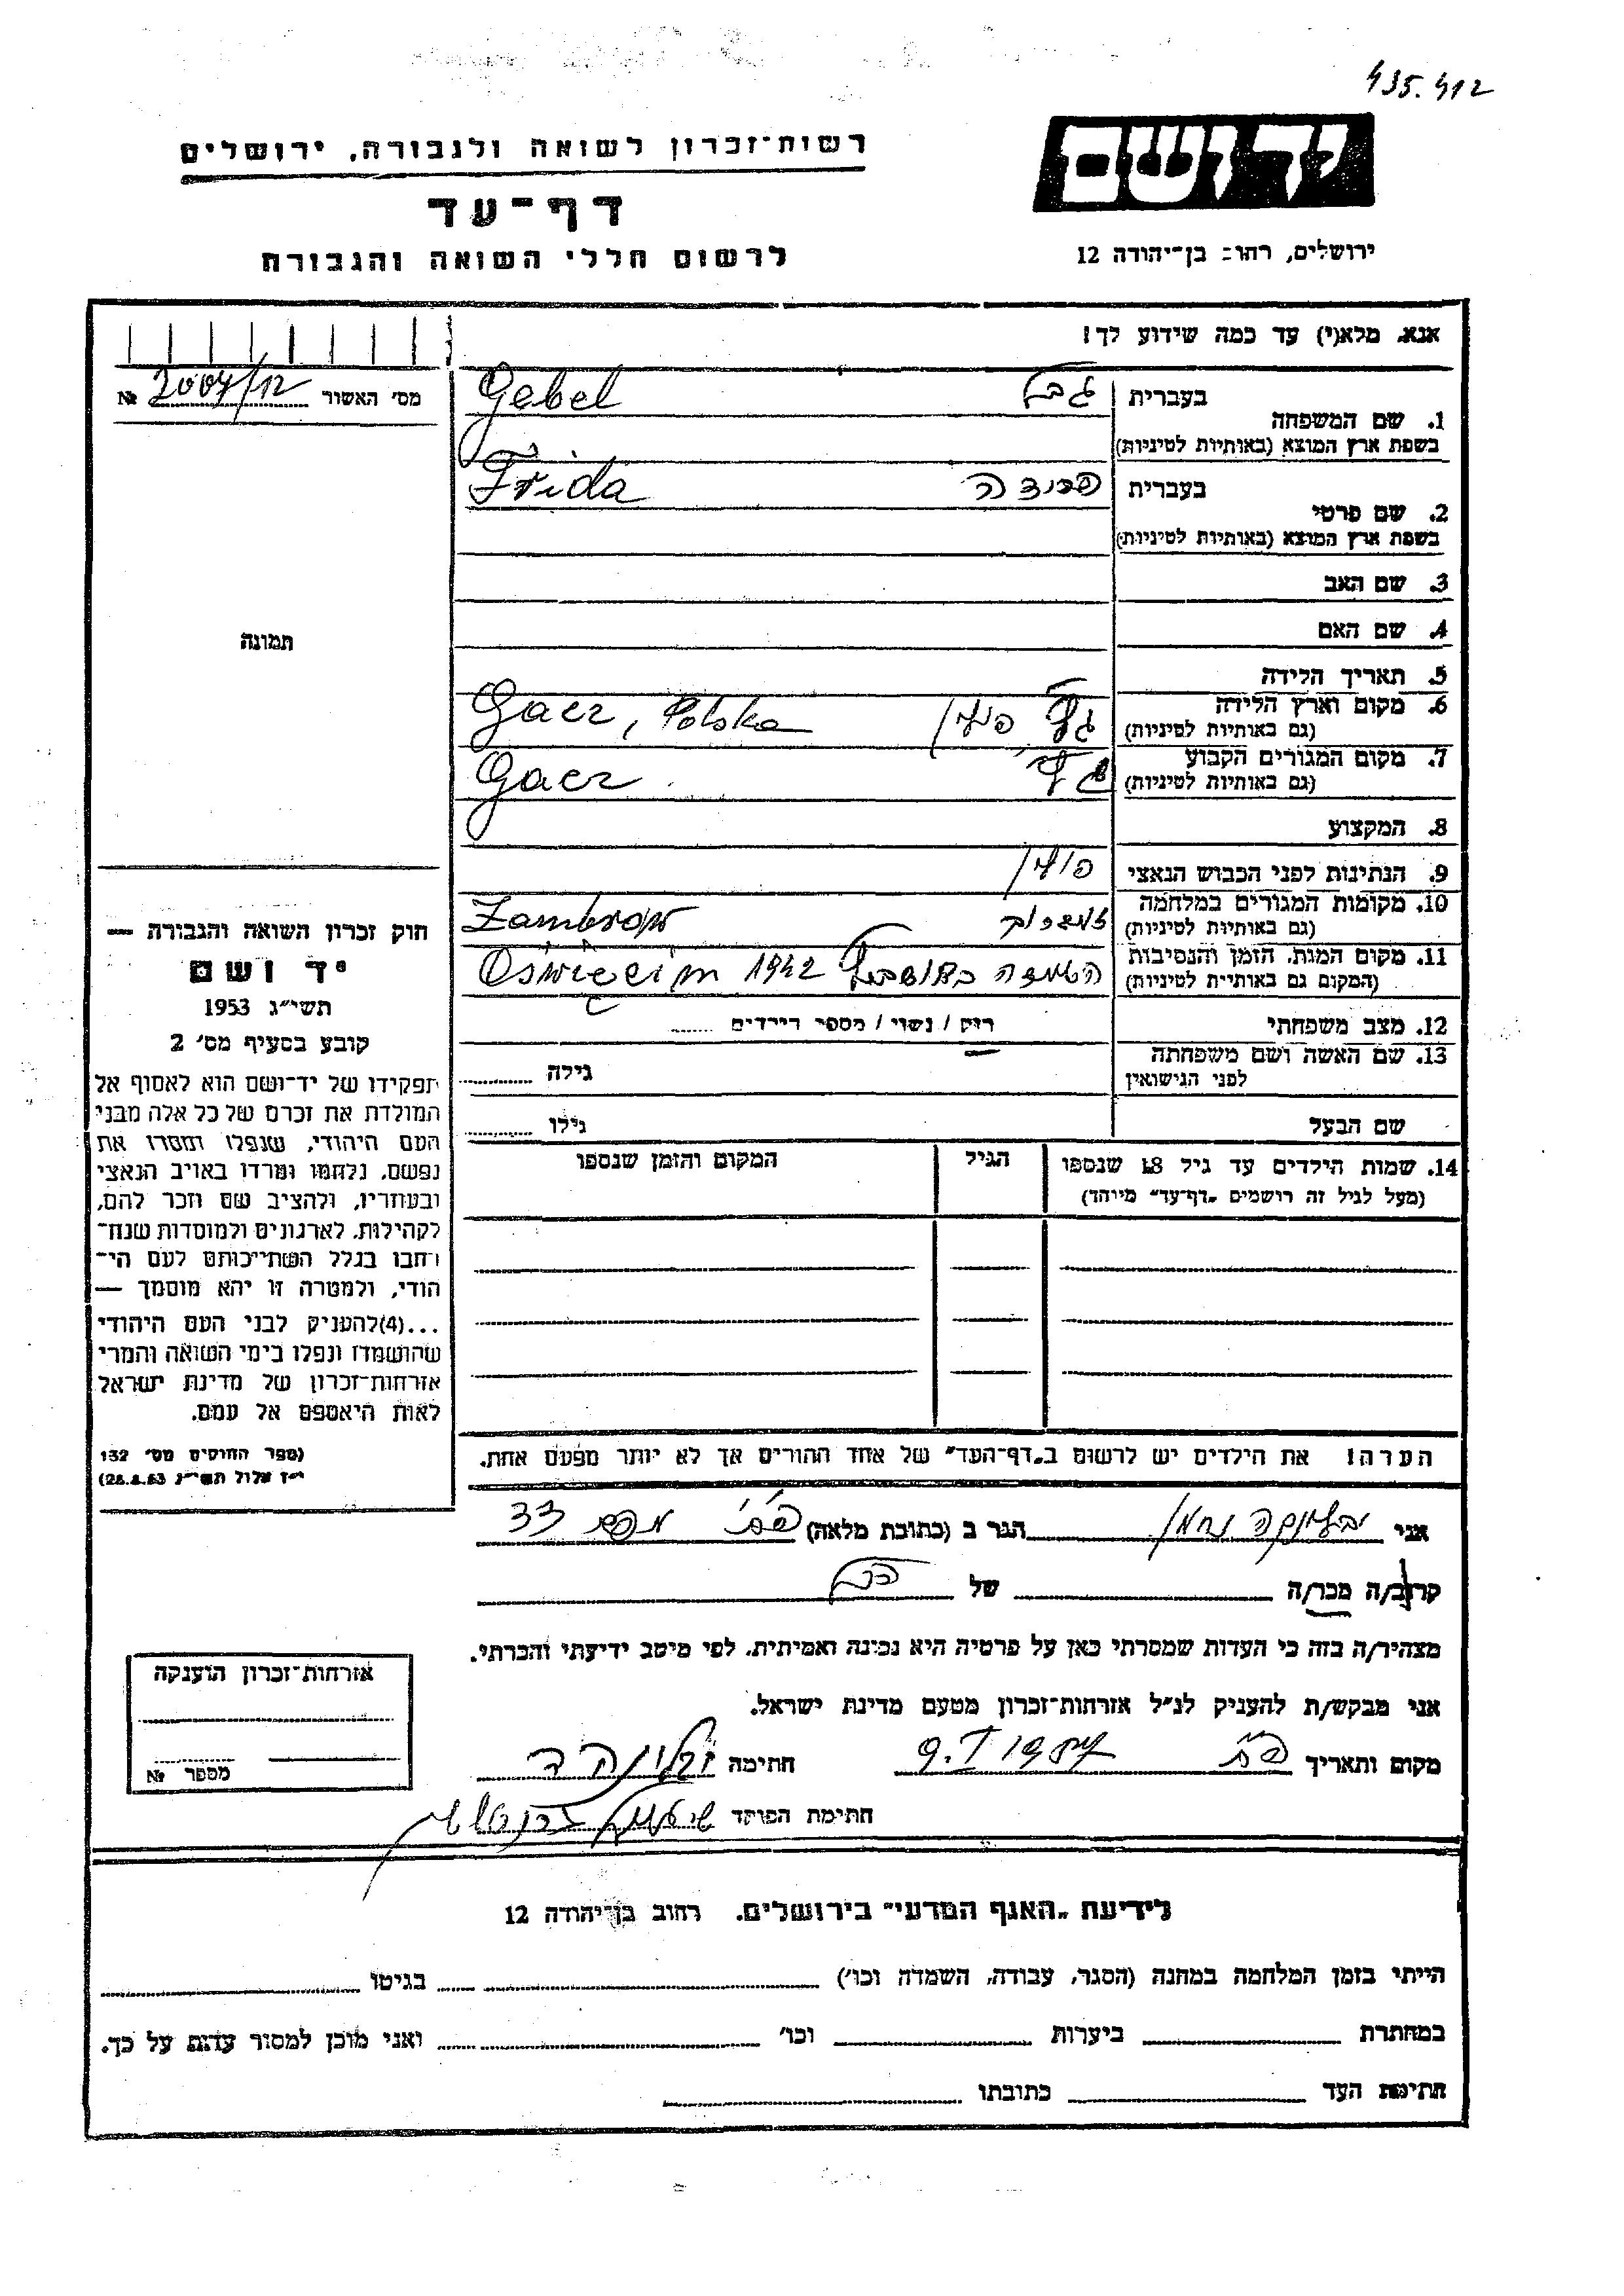 435.412
יד ושם
ירושלים, רחוב בן־יהודה 12
רשות־זכרון לשואה ולגבורה, ירושלים
דף־עד
לרשום חללי השואה והגבורה
אנא, מלא(י) עד כמה שידוע לך!
מס׳ האשור 2007/12 №
תמונה
1. שם המשפחה
בעברית גבל Gebel
בשפת ארץ המוצא (באותיות לטיניות)
בעברית פרידה Frida
2. שם פרטי
בשפת ארץ המוצא (באותיות לטיניות)
3. שם האב
4. שם האם
5. תאריך הלידה
6. מקום וארץ הלידה פולין Gacz, Polska
(גם באותיות לטיניות)
7. מקום המגורים הקבוע Gacz
(גם באותיות לטיניות)
8. המקצוע
9. הנתינות לפני הכבוש הנאצי פולין
10. מקומות המגורים במלחמה Zambrow
(גם באותיות לטיניות)
11. מקום המות, הזמן והנסיבות Oświęcim 1942
(המקום גם באותיות לטיניות)
12. מצב משפחתי רווק / נשוי / מספר הילדים
13. שם האשה ושם משפחתה
לפני הנישואין גילה
שם הבעל גילו
14. שמות הילדים עד גיל 18 שנספו הגיל המקום והזמן שנספו
(מעל לגיל זה רושמים „דף־עד״ מיוחד)
הערה! את הילדים יש לרשום ב„דף־העד״ של אחד ההורים אך לא יותר מפעם אחת.
חוק זכרון השואה והגבורה —
יד ושם
תשי״ג 1953
קובע בסעיף מס׳ 2
תפקידו של יד־ושם הוא לאסוף אל
המולדת את זכרם של כל אלה מבני
העם היהודי, שנפלו ומסרו את
נפשם, נלחמו ומרדו באויב הנאצי
ובעוזריו, ולהציב שם וזכר להם,
לקהילות, לארגונים ולמוסדות שנח־
רחבו בגלל השתייכותם לעם הי־
הודי, ולמטרה זו יהא מוסמך —
...(4)להעניק לבני העם היהודי
שהושמדו ונפלו בימי השואה והמרי
אזרחות־זכרון של מדינת ישראל
לאות היאספם אל עמם.
(ספר החוקים מס׳ 132
י״ז אלול תשי״ג 28.8.53)
אני הגר ב (כתובת מלאה) 33
קרוב/ה מכר/ה של
מצהיר/ה בזה כי העדות שמסרתי כאן על פרטיה היא נכונה ואמיתית, לפי מיטב ידיעתי והכרתי.
אני מבקש/ת להעניק לנ״ל אזרחות־זכרון מטעם מדינת ישראל.
מקום ותאריך 9.I 1957 חתימה
חתימת הפוקד
אזרחות־זכרון הוענקה
מספר №
לידיעת „האגף המדעי״ בירושלים, רחוב בן־יהודה 12
הייתי בזמן המלחמה במחנה (הסגר, עבודה, השמדה וכו׳) בגיטו
במחתרת ביערות וכו׳ ואני מוכן למסור עדות על כך.
חתימת העד כתובתו